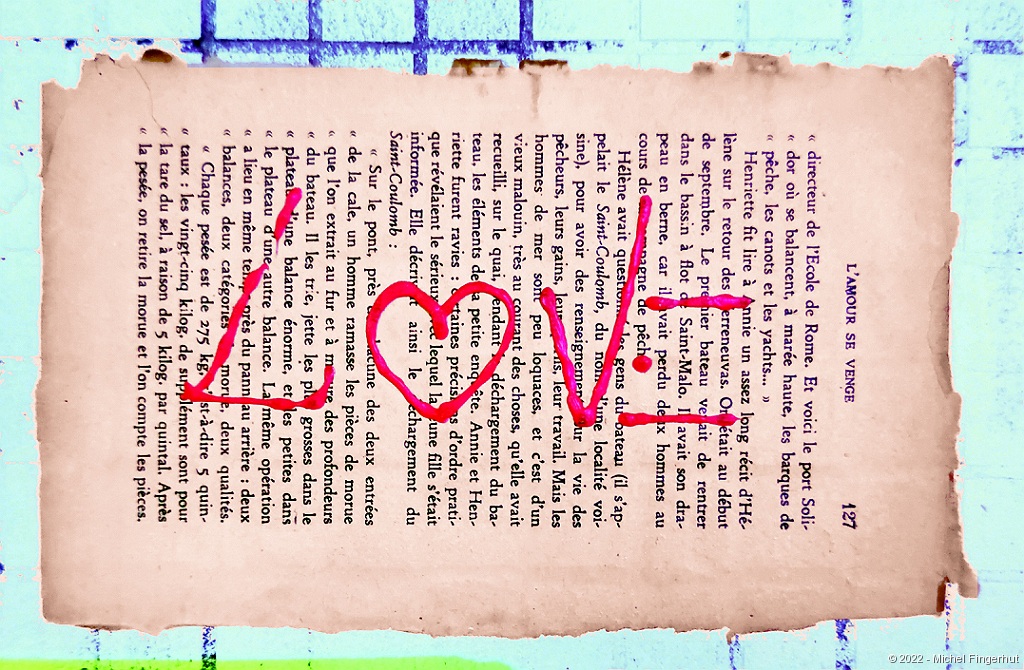 L'AMOUR SE VENGE 127
« directeur de l'Ecole de Rome. Et voici le port Soli-
« dor où se balancent, à marée haute, les barques de
« pêche, les canots et les yachts... »
Henriette fit lire à Annie un assez long récit d'Hé-
lène sur le retour des Terreneuvas. On était au début
de septembre. Le premier bateau venait de rentrer
dans le bassin à flot de Saint-Malo. Il avait son dra-
peau en berne, car il avait perdu deux hommes au
cours de sa campagne de pêche.
Hélène avait questionné les gens du bateau (il s'ap-
pelait le Saint-Coulomb, du nom d'une localité voi-
sine), pour avoir des renseignements sur la vie des
pêcheurs, leurs gains, leurs, leur travail. Mais les
hommes de mer sont peu loquaces, et c'est d'un
vieux malouin, très au courant des choses, qu'elle avait
recueilli, sur le quai, pendant le déchargement du ba-
teau, les éléments de sa petite enquête. Annie et Hen-
riette furent ravies : certaines précisions d'ordre prati-
que révélaient le sérieux avec lequel la jeune fille s'était
informée. Elle décrivait ainsi le déchargement du
Saint-Coulomb :
« Sur le pont, près de chacune des deux entrées
« de la cale, un homme ramasse les pièces de morue
« que l'on extrait au fur et à mesure des profondeurs
« du bateau. Il les trie, jette les plus grosses dans le
« plateau d'une balance énorme, et les petites dans
« le plateau d'une autre balance. La même opération
« a lieu en même temps près du panneau arrière : deux
« balances, deux catégories de morue, deux qualités.
« Chaque pesée est de 275 kg, c'est-à-dire 5 quin-
« taux : les vingt-cinq kilog. de supplément sont pour
« la tare du sel, à raison de 5 kilog. par quintal. Après
« la pesée, on retire la morue et l'on compte les pièces.
L V
© 2022 - Michel Fingerhut